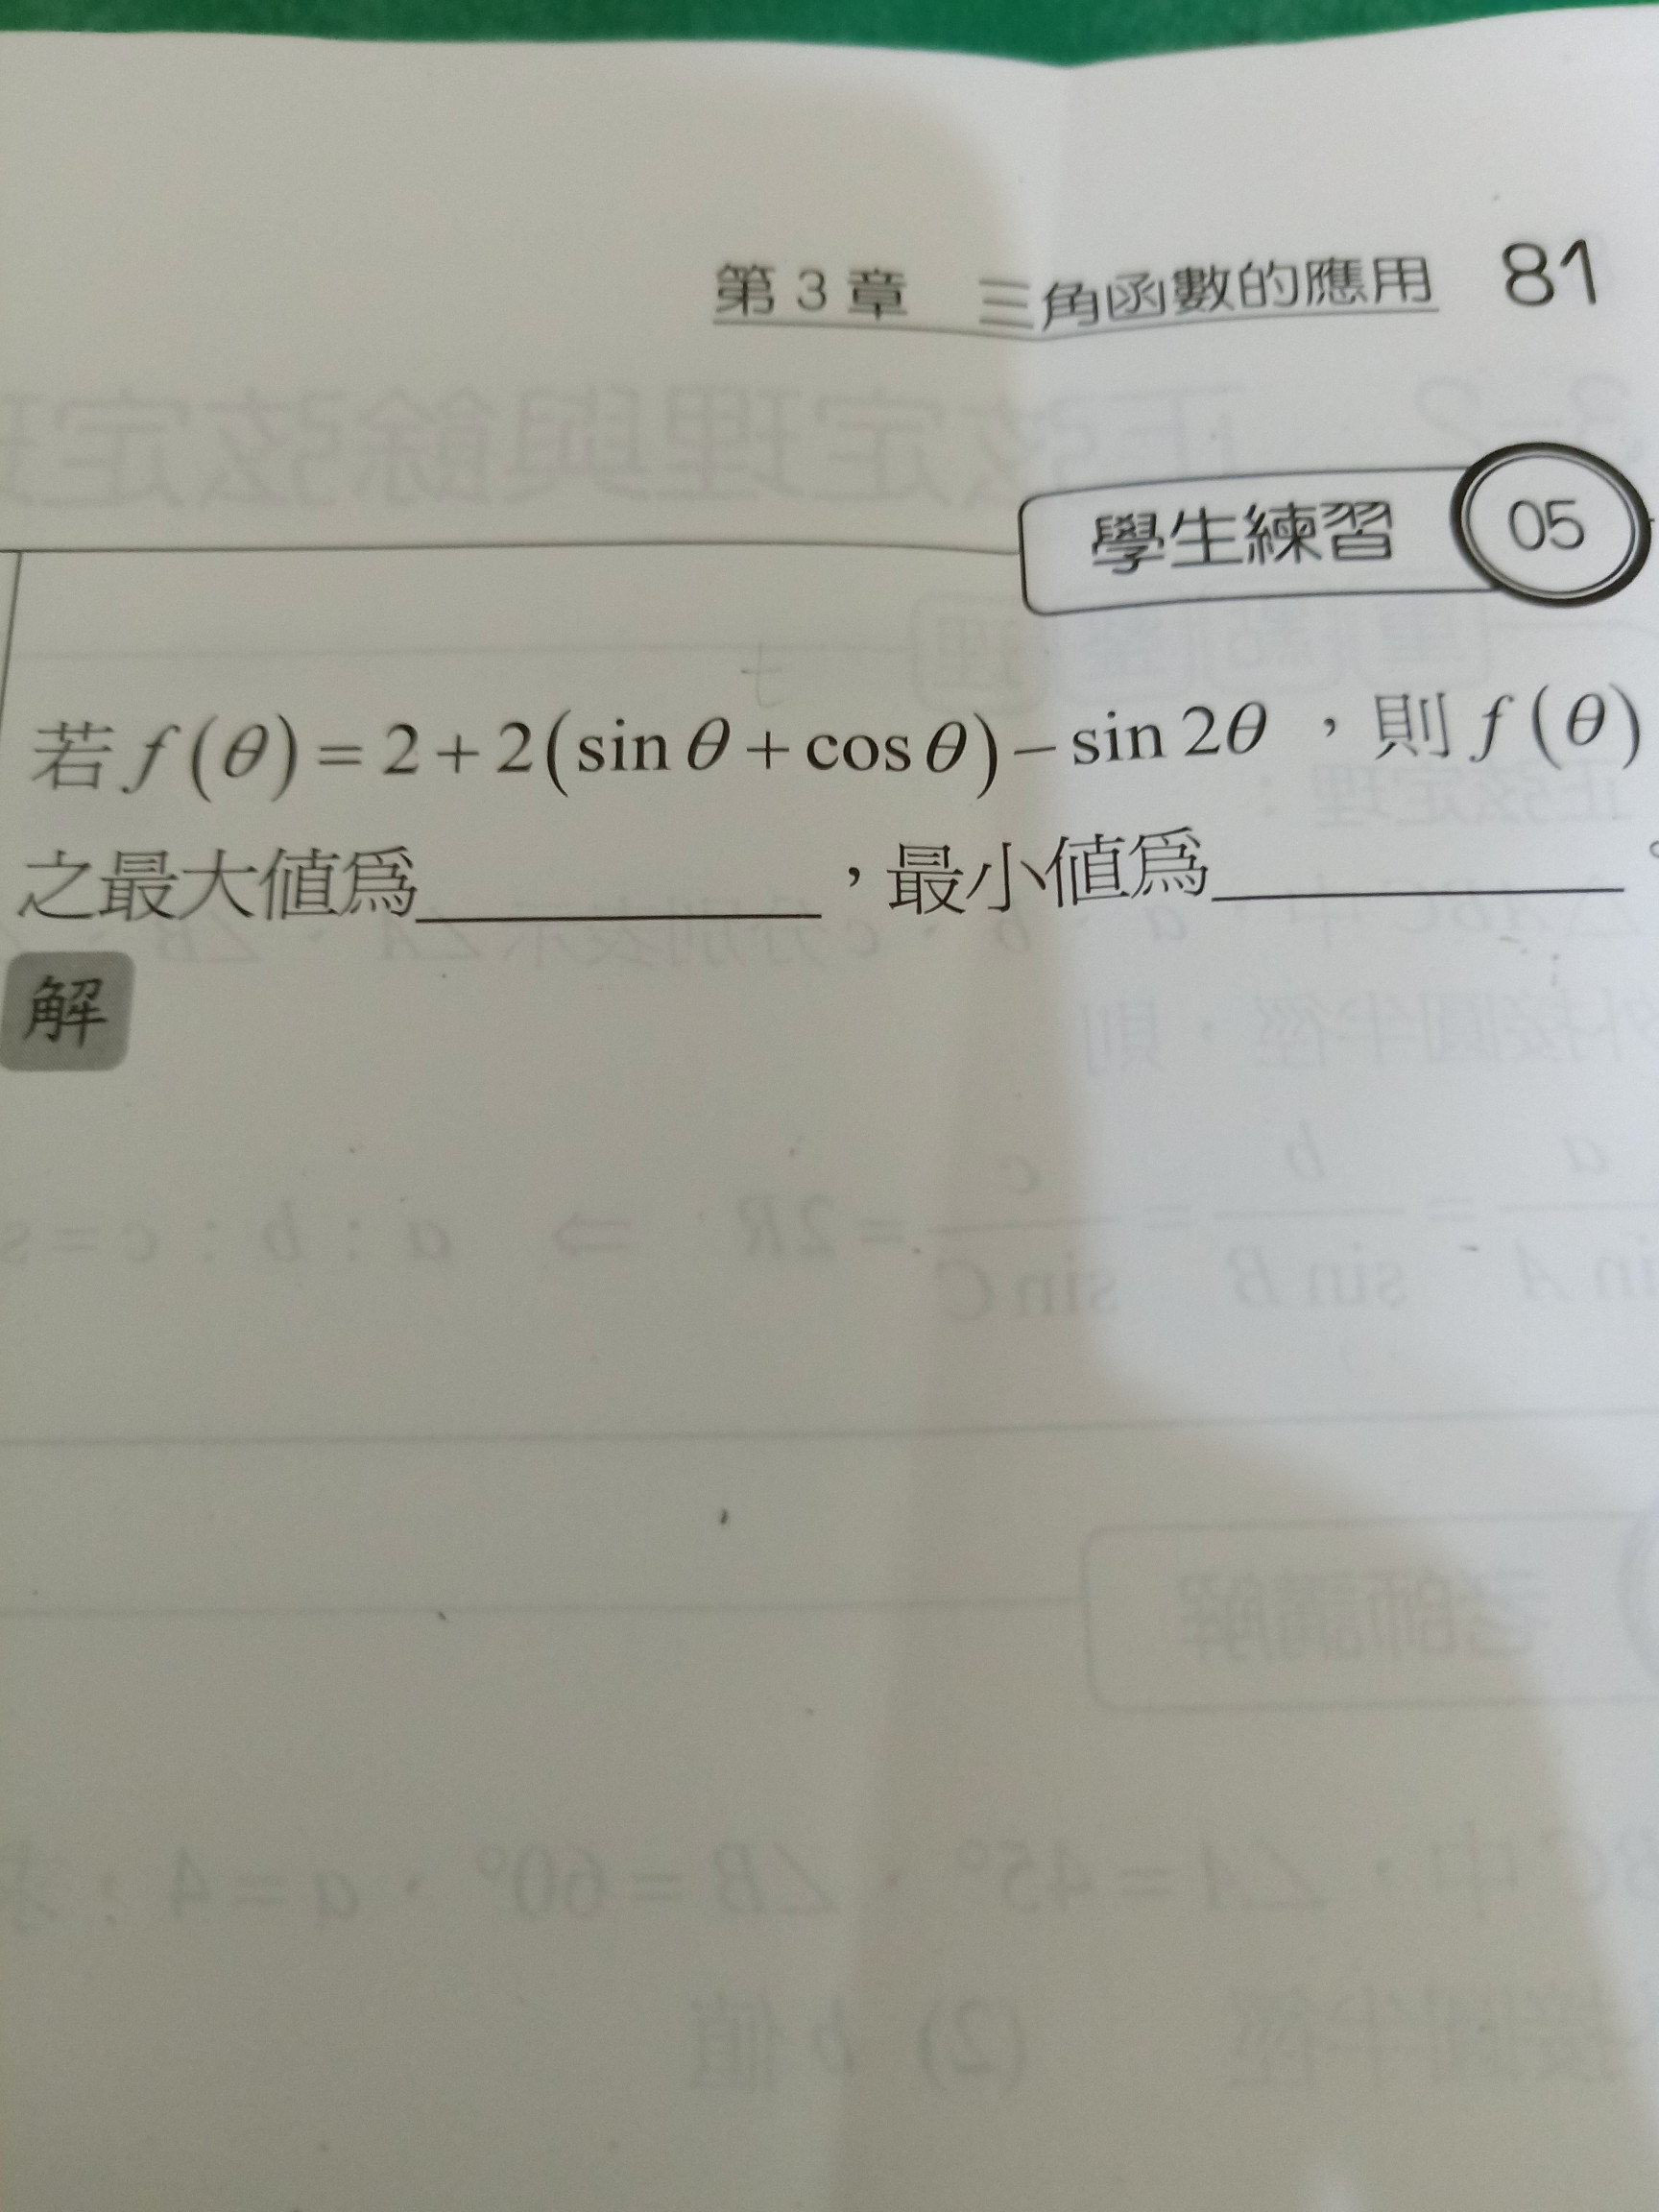 第3章 三角函數的應用 81
學生練習 05
若 f(θ)=2+2(sinθ+cosθ)−sin2θ ，則 f(θ)
之最大值為__________，最小值為__________。
解